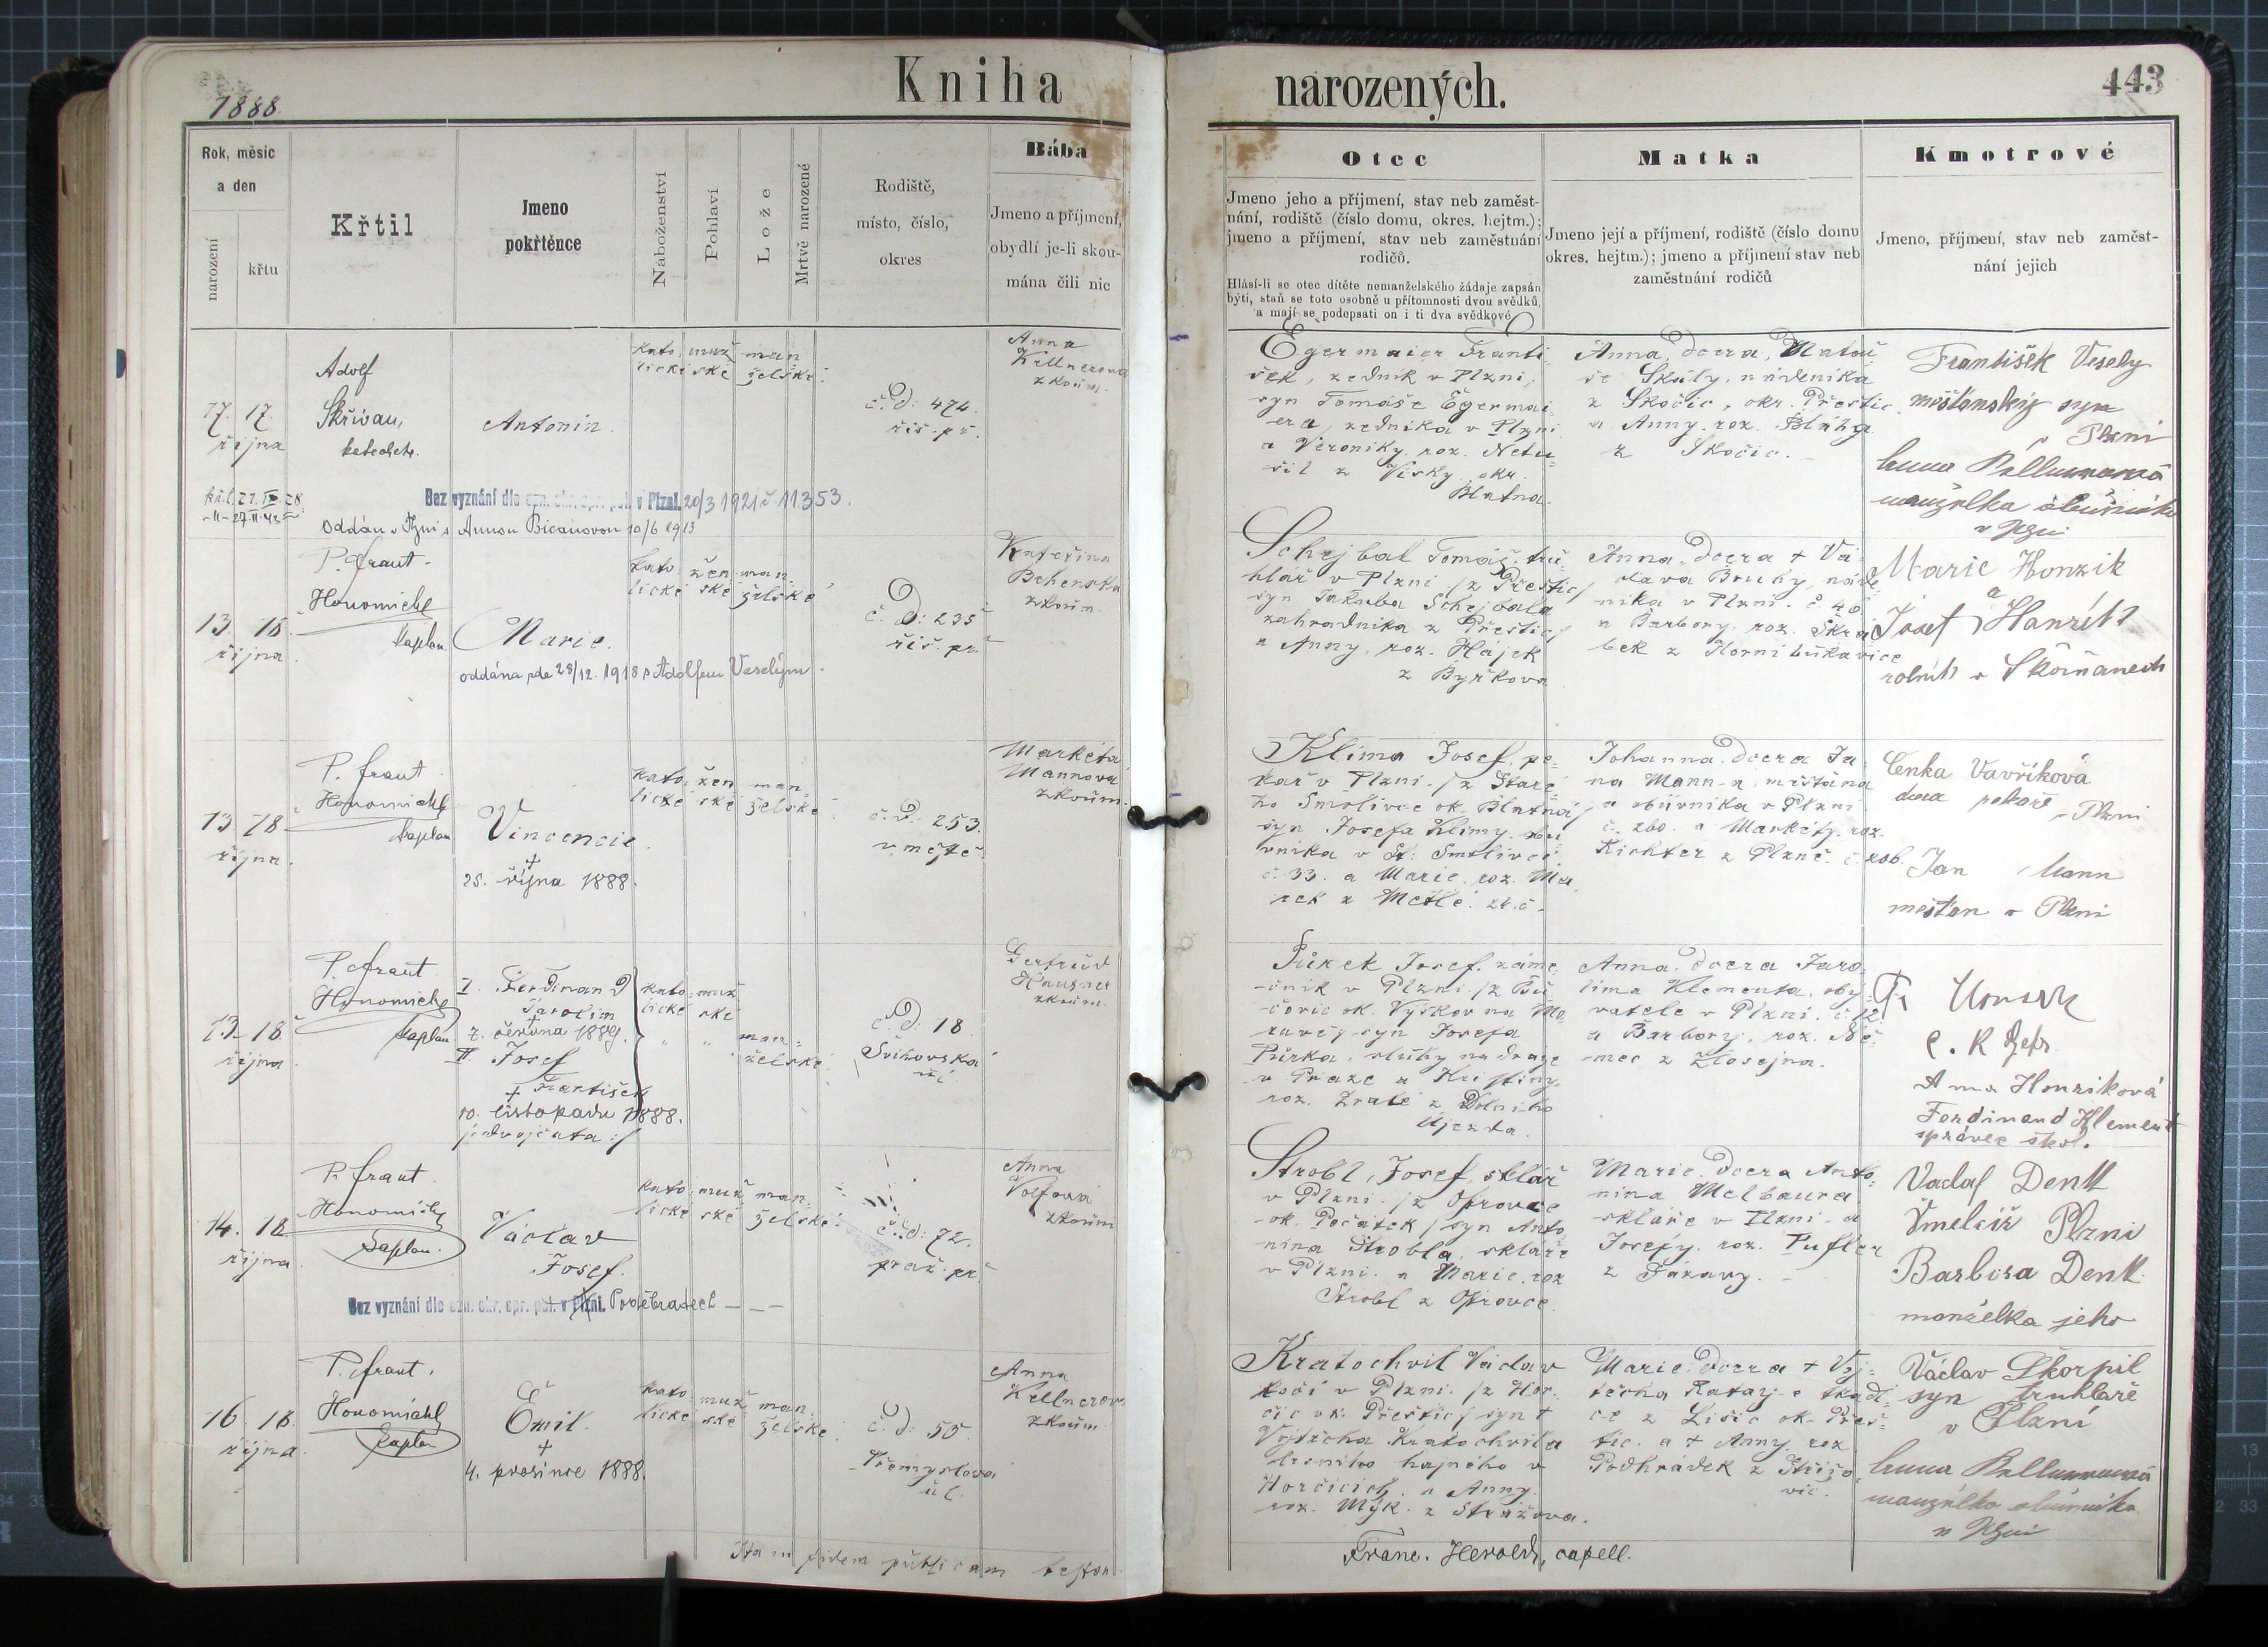 1888.
Kniha narozených.
443
Rok, měsíc
a den
narození
křtu
Křtil
Jmeno
pokřtěnce
Náboženství
Pohlaví
Lože
Mrtvě narozené
Rodiště,
místo, číslo,
okres
Bába
Jmeno a příjmení,
obydlí je-li skou-
mána čili nic
Otec
Jmeno jeho a příjmení, stav neb zaměst-
nání, rodiště (číslo domu, okres. hejtm.);
jmeno a příjmení, stav neb zaměstnání
rodičů.
Hlásí-li se otec dítěte nemanželského žádaje zapsán
býti, staň se toto osobně u přítomnosti dvou svědků,
a mají se podepsati on i ti dva svědkové
Matka
Jmeno její a příjmení, rodiště (číslo domu
okres. hejtm.); jmeno a příjmení stav neb
zaměstnání rodičů
Kmotrové
Jmeno, příjmení, stav neb zaměst-
nání jejich
17. 17.
října
Adolf
Skřivan,
katecheta.
Antonín.
kato- muž man
lické ské želské.
č. d: 474.
řís. př.
Anna
Kellnerova
zkoum.
Egermaier Franti-
šek, zedník v Plzni,
syn Tomáše Egermai-
era, zedníka v Plzni
a Veroniky, roz. Netu-
šil z Visky, okr.
Blatna.
Anna, dcera, Matou
še Skály, nádeníka
z Skočic, okr. Přestic
a Anny, roz. Bláha
z Skočic.
František Vesely
měšťanský syn
v Plzni
Anna Kellnerová
manželka obuvníka
v Plzni
Bez vyznání dle ozn. okr. spr. pol. v Plzni. 20/3 1921 č. 11353.
Oddán v Plzni s Annou Bicanovou 10/6 1913
13. 18.
října.
P. Frant.
Honomichl
kaplan
Marie.
oddána zde 28/12. 1918 s Adolfem Veselým.
kato- žen man
lické ské želské
č. d: 235
říš. př.
Kateřina
zkoum.
Schejbal Tomáš, tru-
hlář v Plzni /z Přeštic/
syn Jakuba Schejbala
zahradníka z Přeštic,
a Anny, roz. Hájek
z Byrkova
Anna, dcera + Vá-
clava Bruhy, náde
níka v Plzni. č 40
a Barbory, roz. Skrá
bek z Horní Lukavice
Marie Honzik
a
Josef Hanzík
rolník v Skvrňanech
13 18
října.
P. Frant.
Honomichl
kaplan
Vincencie.
+
25. října 1888.
kato- žen man
lické ské želské.
č. d. 253.
v městě
Marketa
Mannova
zkoum.
Klíma Josef, pe-
kař v Plzni. /z Staré-
ho Smolivce ok. Blatná/
syn Josefa Klímy, obu
vníka v St: Smolivci
č. 33. a Marie, roz. Ma
rek z Metlé. 24. č.
Johanna, dcera Ja-
na Mann-a, měšťana
a obuvníka v Plzni
č. 260. a Markéty, roz.
Richter z Plzně. č. 206.
Čenka Vavříková
dcera pekaře v Plzni
Jan Mann
měštan v Plzni
13 18.
října
P. Frant.
Honomichl
kaplan
I. Ferdinand
Jarolím
+
7. června 1889.
II. Josef
František
+
10. listopadu 1888.
/:dvojčata:/
kato- muž
lické ské
" " man-
želské.
č. d: 18
Gertrud
zkoum.
Půrek Josef, záme-
čník v Plzni /z Bu
čovic ok. Vyškov na Mo
ravě/ syn Josefa
Půrka, sluhy na dráze
v Praze a Kristiny,
roz. Zralé z Dolního
Újezda.
Anna, dcera Jaro-
líma Klementa, oby-
vatele v Plzni. č 12.
a Barbory, roz. Ně-
mec z Zlosejna.
Anna Honzíková
Ferdinand Klement
správce školy.
14. 18
října
P. Frant.
Honomichl
kaplan.
Václav
Josef.
kato- muž man
lické ské želské
č. d: 72.
praž. př.
Anna
Volfova
zkoum
Strobl, Josef, sklář
v Plzni. /z Oprovce
ok. Počátek/ syn Anto
nína Strobla, skláře
v Plzni. a Marie, roz
Strobl z Oprovce.
Marie, dcera Anto-
nína Melbaura
skláře v Plzni a
Josefy, roz.
z Sázavy.
Vaclaf Denk
Plzni
Barbora Denk
manželka jeho
Bez vyznání dle ozn. okr. spr. pol. v Plzni. Poděbradech
16. 18.
října.
P. Frant.
Honomichl
kaplan
Emil.
+
4. prosince 1888.
kato- muž man
lické ské želské.
č. d: 50.
Přemyslova
ul.
Anna
Kellnerov
zkoum
Kratochvil Václav
kočí v Plzni. /z Hor-
čic ok. Přeštic/ syn +
Vojtěcha Kratochvíla
lesního hajného v
Horčicích, a Anny
roz. Mýk. z Strážova.
Marie, dcera + Voj-
těcha Rataj-e tkadl-
ce z Lišic ok. Přeš-
tic. a + Anny, roz
Podhrádek z Střížo
vic.
Václav Škorpil
syn truhláře
v Plzni
Anna Kellnerová
manželka obuvníka
v Plzni
Ita in fidem publicam testor
Franc. Herold, capell.